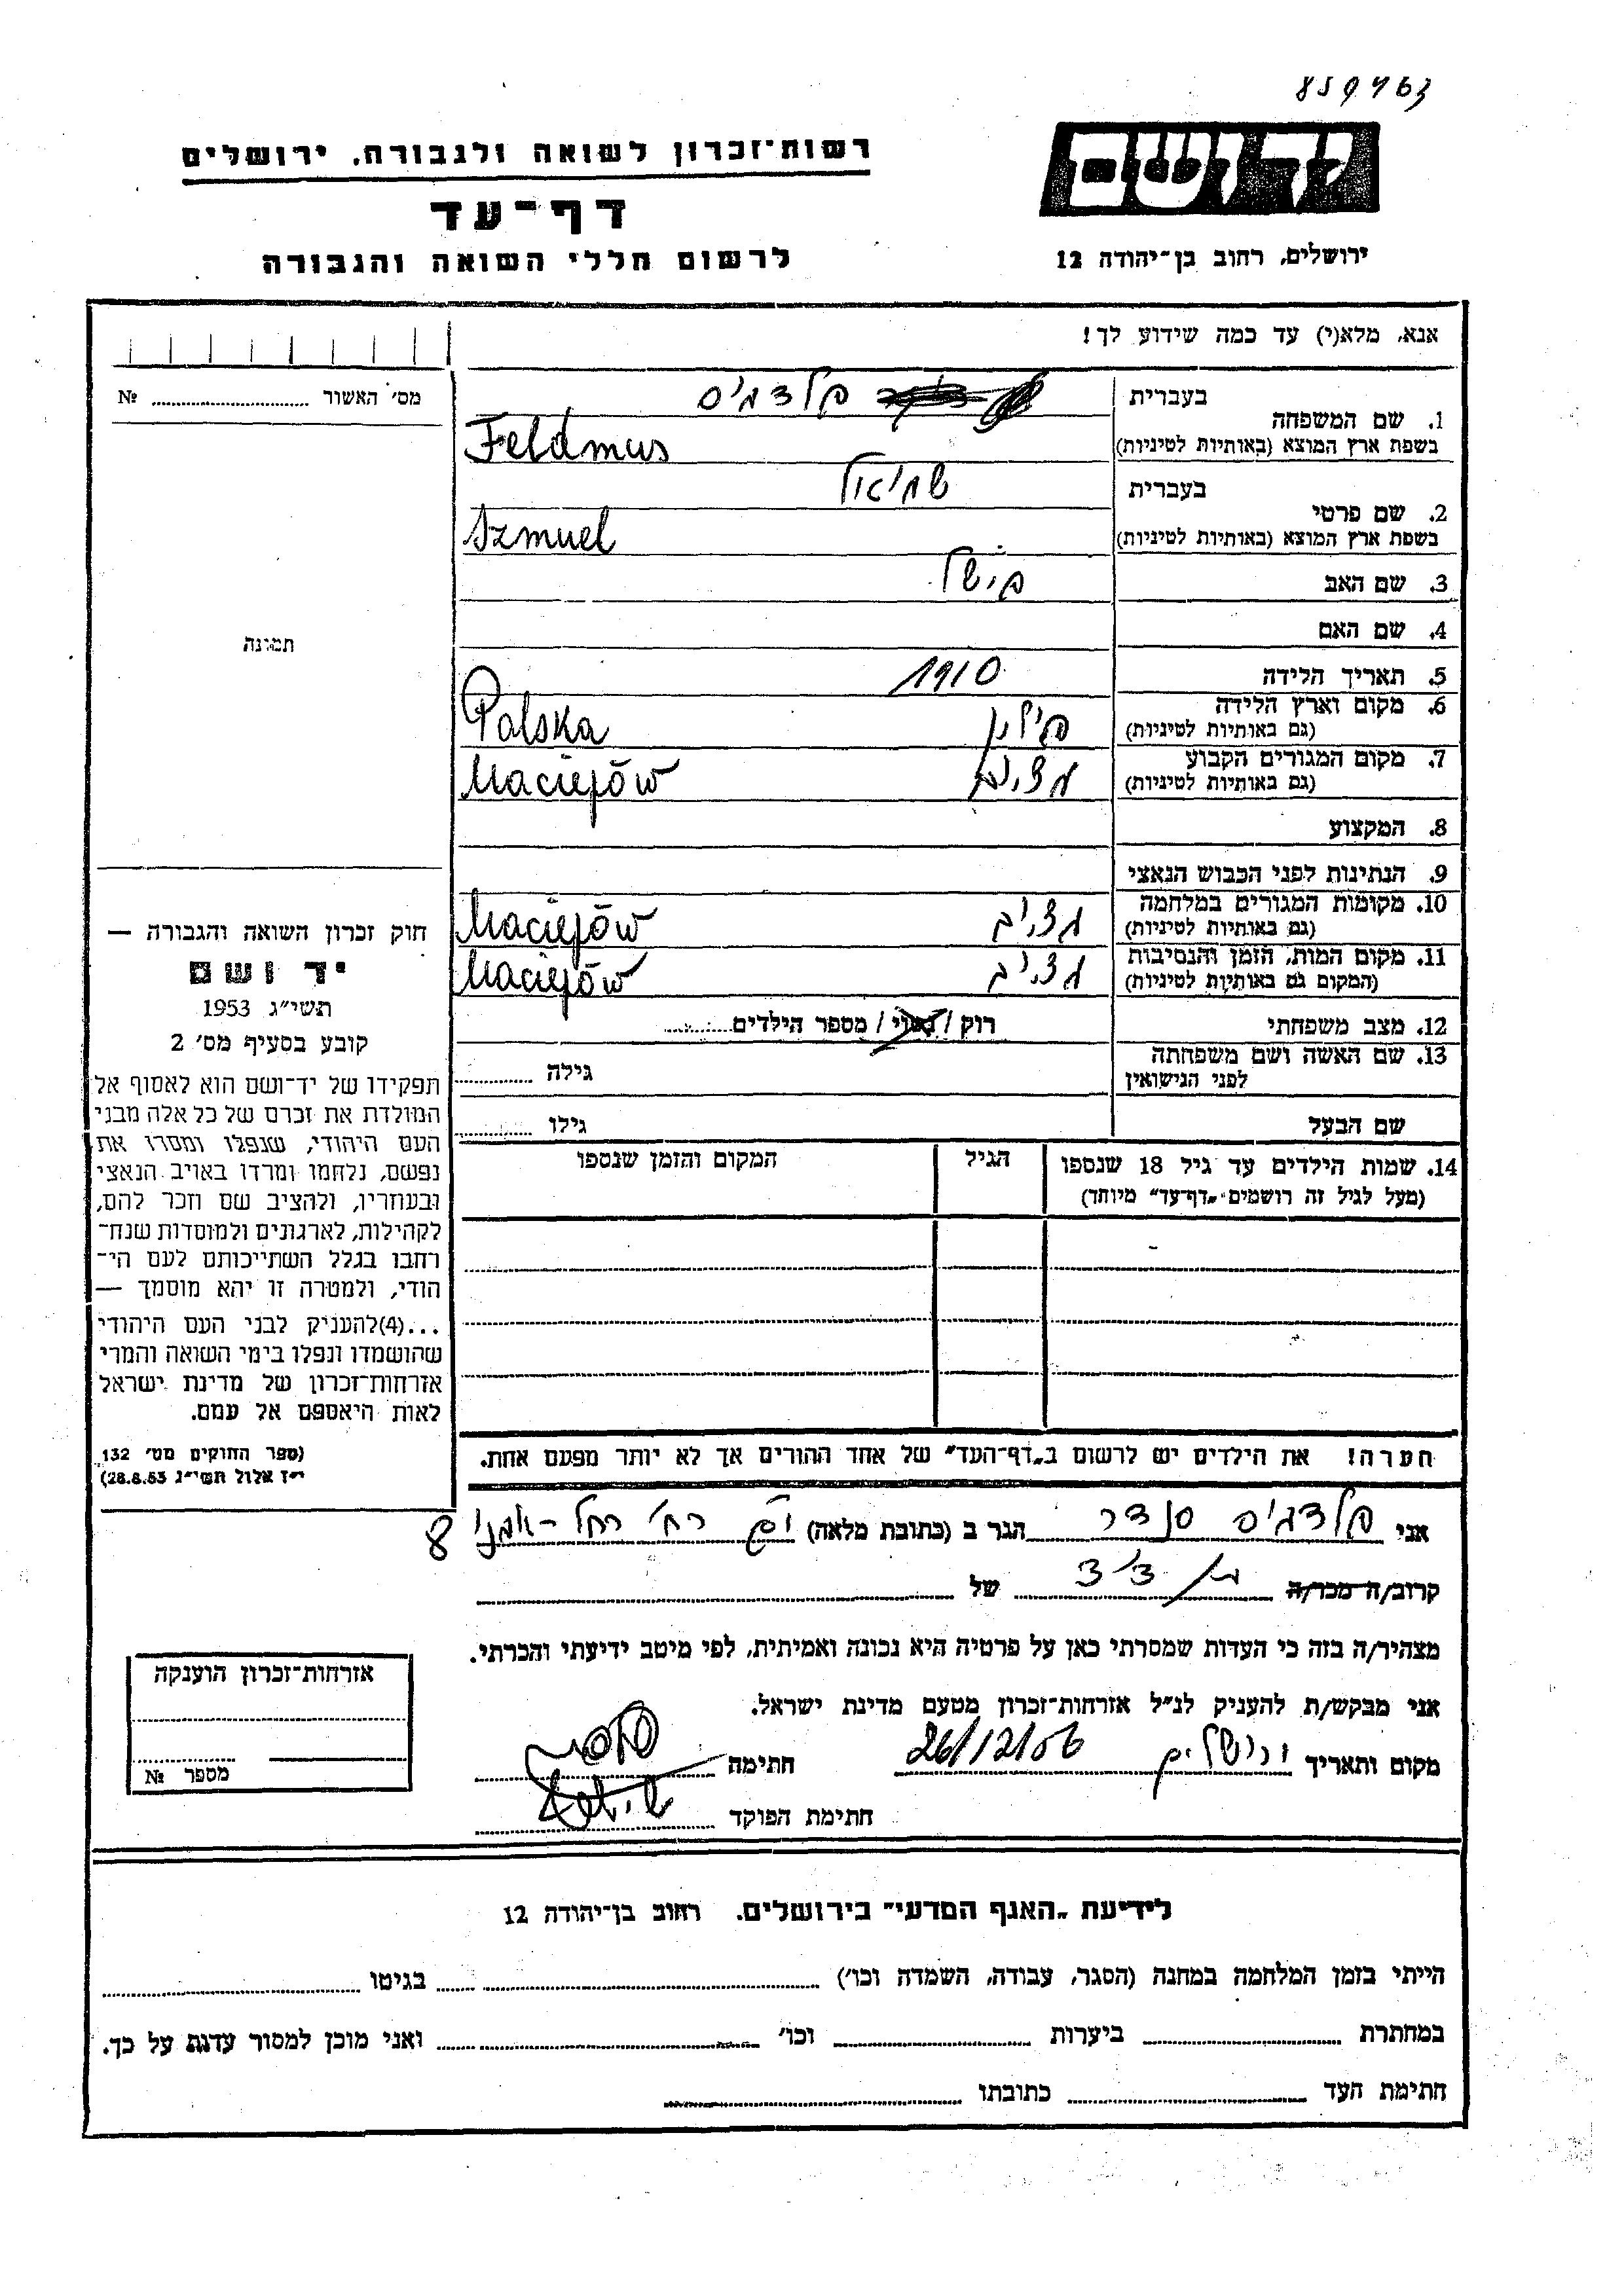 859463
יד ושם
רשות־זכרון לשואה ולגבורה, ירושלים
דף־עד
לרשום חללי השואה והגבורה
ירושלים, רחוב בן־יהודה 12
אנא, מלא(י) עד כמה שידוע לך!
1. שם המשפחה
בעברית
פלדמוס
בשפת ארץ המוצא (באותיות לטיניות)
Feldmus
2. שם פרטי
בעברית
שמואל
בשפת ארץ המוצא (באותיות לטיניות)
Szmuel
3. שם האב
פישל
4. שם האם
5. תאריך הלידה
1910
6. מקום וארץ הלידה
(גם באותיות לטיניות)
פולין Polska
7. מקום המגורים הקבוע
(גם באותיות לטיניות)
Maciejów
8. המקצוע
9. הנתינות לפני הכבוש הנאצי
10. מקומות המגורים במלחמה
(גם באותיות לטיניות)
Maciejów
11. מקום המות, הזמן והנסיבות
(המקום גם באותיות לטיניות)
Maciejów
12. מצב משפחתי
רוק / נשוי / מספר הילדים
13. שם האשה ושם משפחתה
לפני הנישואין
גילה
שם הבעל
גילו
14. שמות הילדים עד גיל 18 שנספו
(מעל לגיל זה רושמים "דף־עד" מיוחד)
הגיל
המקום והזמן שנספו
הערה! את הילדים יש לרשום ב"דף־העד" של אחד ההורים אך לא יותר מפעם אחת.
מס׳ האשור № 
תמונה
חוק זכרון השואה והגבורה —
יד ושם
תשי״ג 1953
קובע בסעיף מס׳ 2
תפקידו של יד־ושם הוא לאסוף אל
המולדת את זכרם של כל אלה מבני
העם היהודי, שנפלו ומסרו את
נפשם, נלחמו ומרדו באויב הנאצי
ובעוזריו, ולהציב שם וזכר להם,
לקהילות, לארגונים ולמוסדות שנח־
רבו בגלל השתייכותם לעם הי־
הודי, ולמטרה זו יהא מוסמך —
...(4)להעניק לבני העם היהודי
שהושמדו ונפלו בימי השואה והמרי
אזרחות־זכרון של מדינת ישראל
לאות היאספם אל עמם.
(ספר החוקים מס׳ 132
י״ז אלול תשי״ג 28.8.53)
אני פלדמוס סנדר הגר ב (כתובת מלאה) רח׳ רחל־אמנו 8
קרוב/ה מכר/ה של
מצהיר/ה בזה כי העדות שמסרתי כאן על פרטיה היא נכונה ואמיתית, לפי מיטב ידיעתי והכרתי.
אני מבקש/ת להעניק לנ״ל אזרחות־זכרון מטעם מדינת ישראל.
מקום ותאריך ירושלים 26/12/56 חתימה
חתימת הפוקד
אזרחות־זכרון הוענקה
מספר №
לידיעת "האגף המדעי" בירושלים. רחוב בן־יהודה 12
הייתי בזמן המלחמה במחנה (הסגר, עבודה, השמדה וכו׳) בגיטו
במחתרת ביערות וכו׳ ואני מוכן למסור עדות על כך.
חתימת העד כתובתו